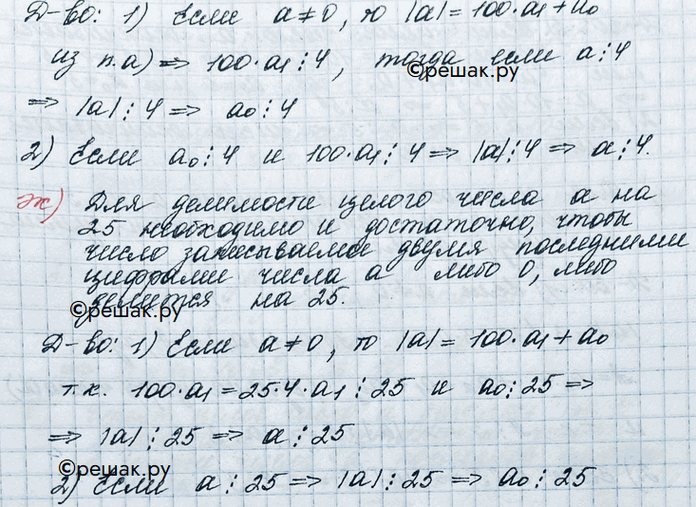 Д-во: 1) Если a≠0, то |a| = 100·a₁+a₀
из п.а) ⇒ 100·a₁⋮4, тогда если a⋮4
©решак.ру
⇒ |a|⋮4 ⇒ a₀⋮4
2) Если a₀⋮4 и 100·a₁⋮4 ⇒ |a|⋮4 ⇒ a⋮4.
ж) Для делимости целого числа a на
25 необходимо и достаточно, чтобы
число записываемое двумя последними
цифрами числа a либо 0, либо
делится на 25.
©решак.ру
Д-во: 1) Если a≠0, то |a| = 100·a₁+a₀
т.к. 100·a₁=25·4·a₁⋮25 и a₀⋮25 ⇒
⇒ |a|⋮25 ⇒ a⋮25
©решак.ру
2) Если a⋮25 ⇒ |a|⋮25 ⇒ a₀⋮25